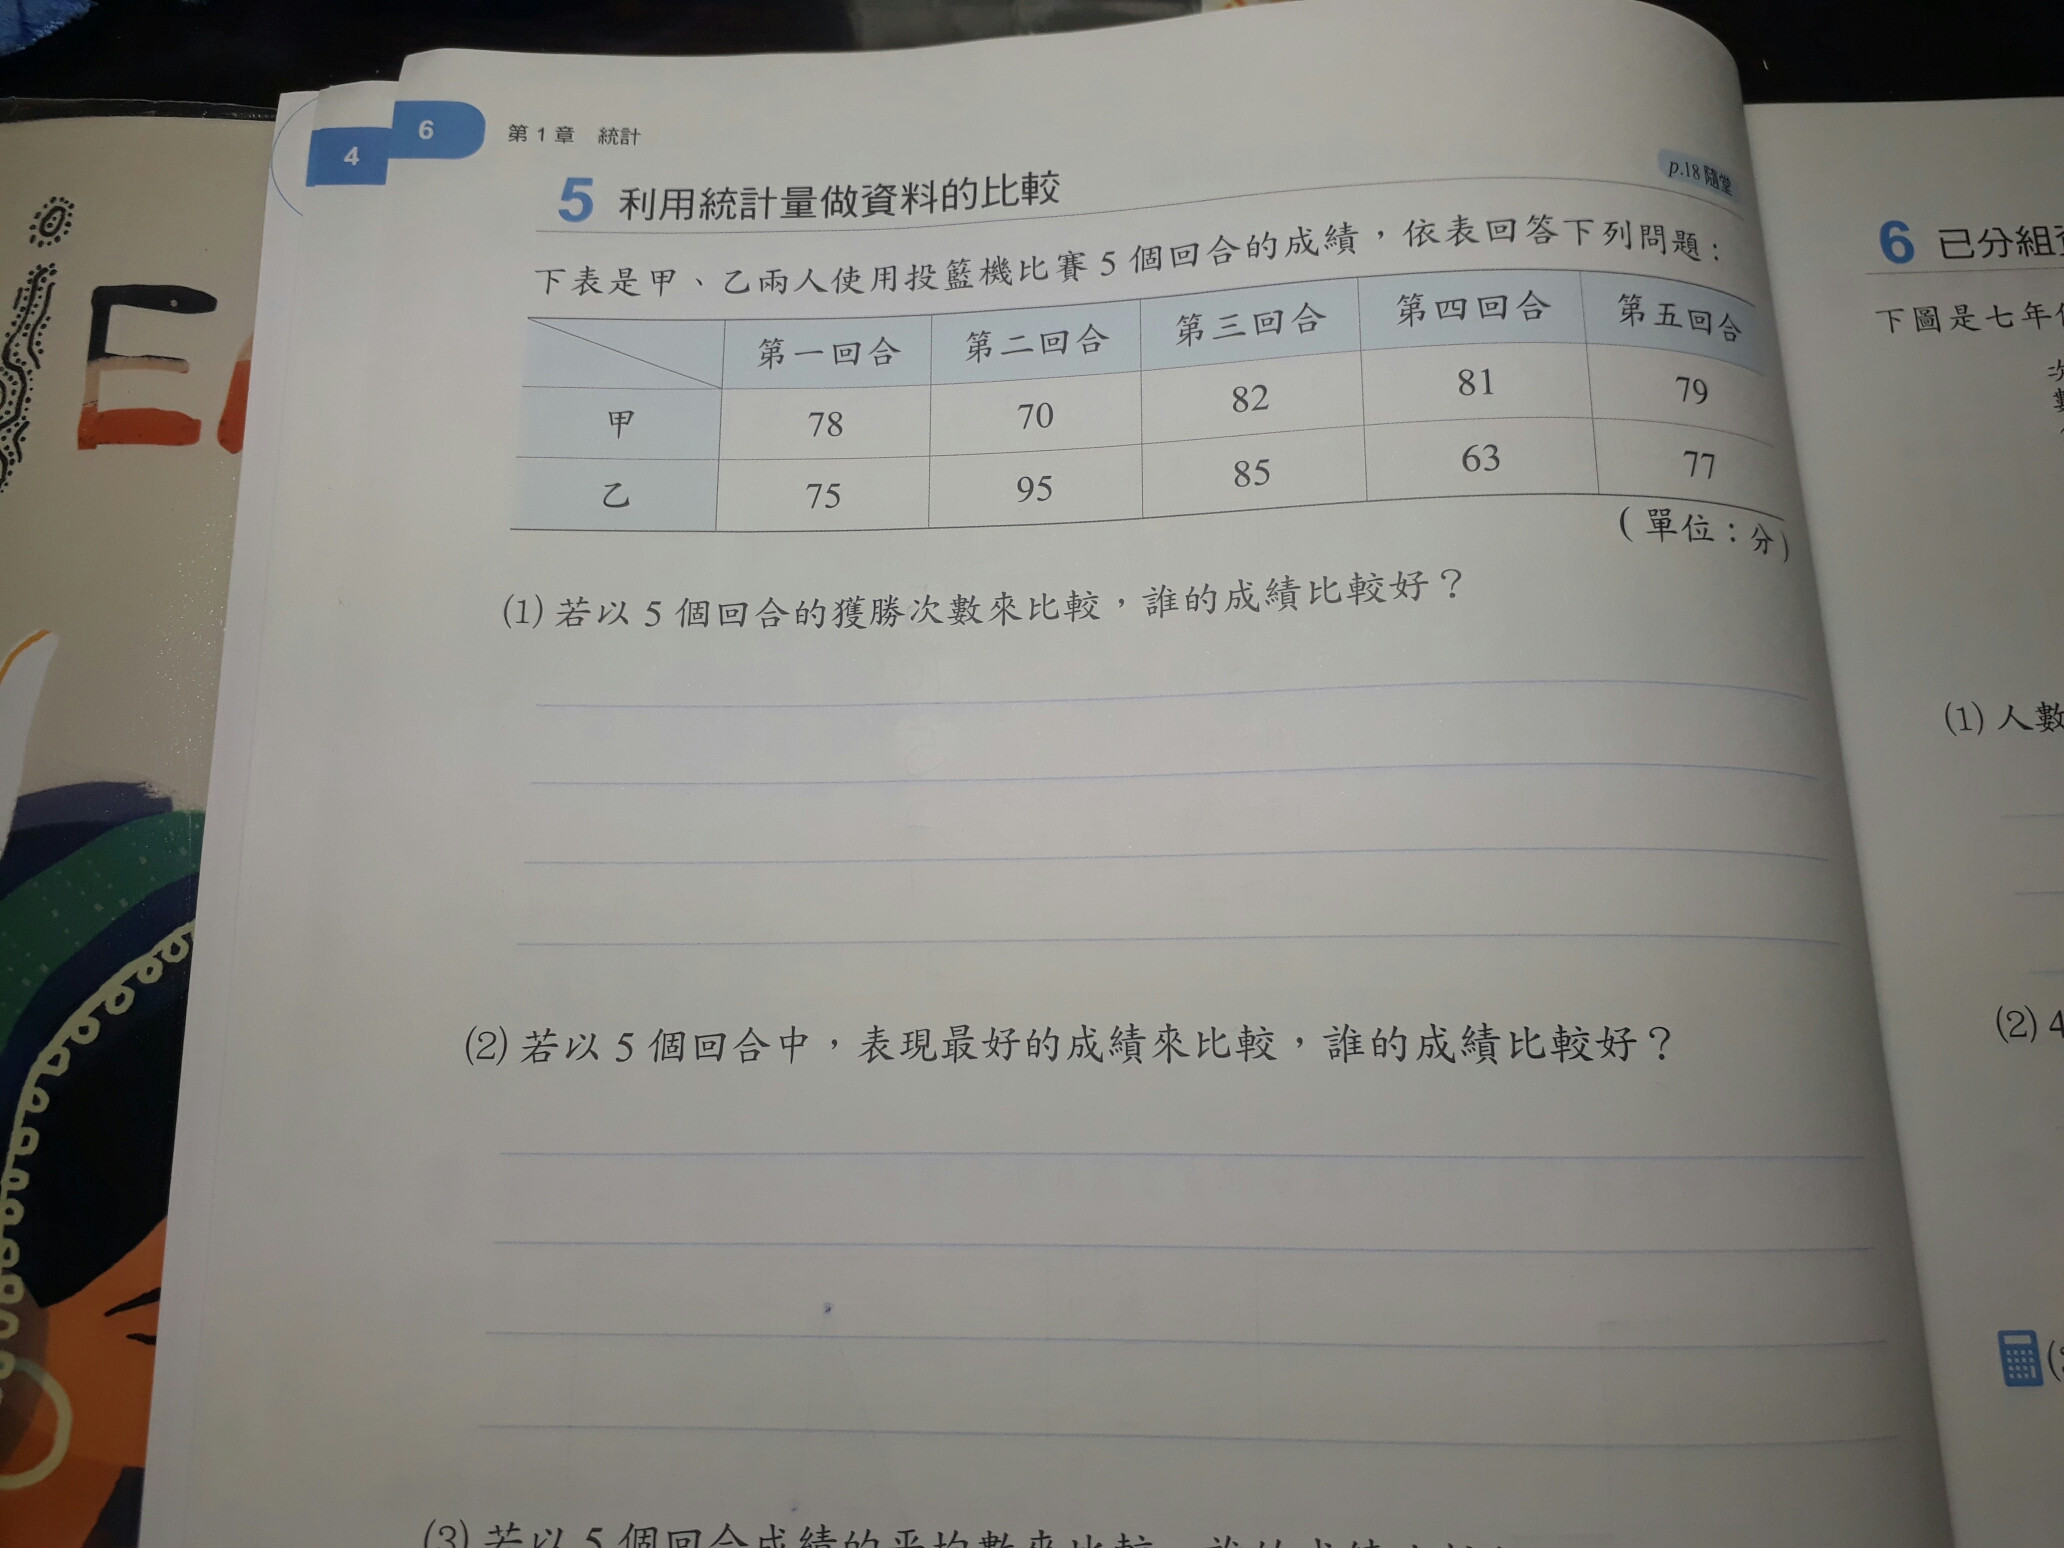 4
6
第1章 統計
p.18 隨堂
5 利用統計量做資料的比較
下表是甲、乙兩人使用投籃機比賽5個回合的成績，依表回答下列問題：
第一回合 第二回合 第三回合 第四回合 第五回合
甲 78 70 82 81 79
乙 75 95 85 63 77
（單位：分）
(1) 若以5個回合的獲勝次數來比較，誰的成績比較好？
(2) 若以5個回合中，表現最好的成績來比較，誰的成績比較好？
(3) 若以5個回合成績的平均數來比較，誰的成績
6 已分組
下圖是七年
次
數
(1) 人數
(2) 4